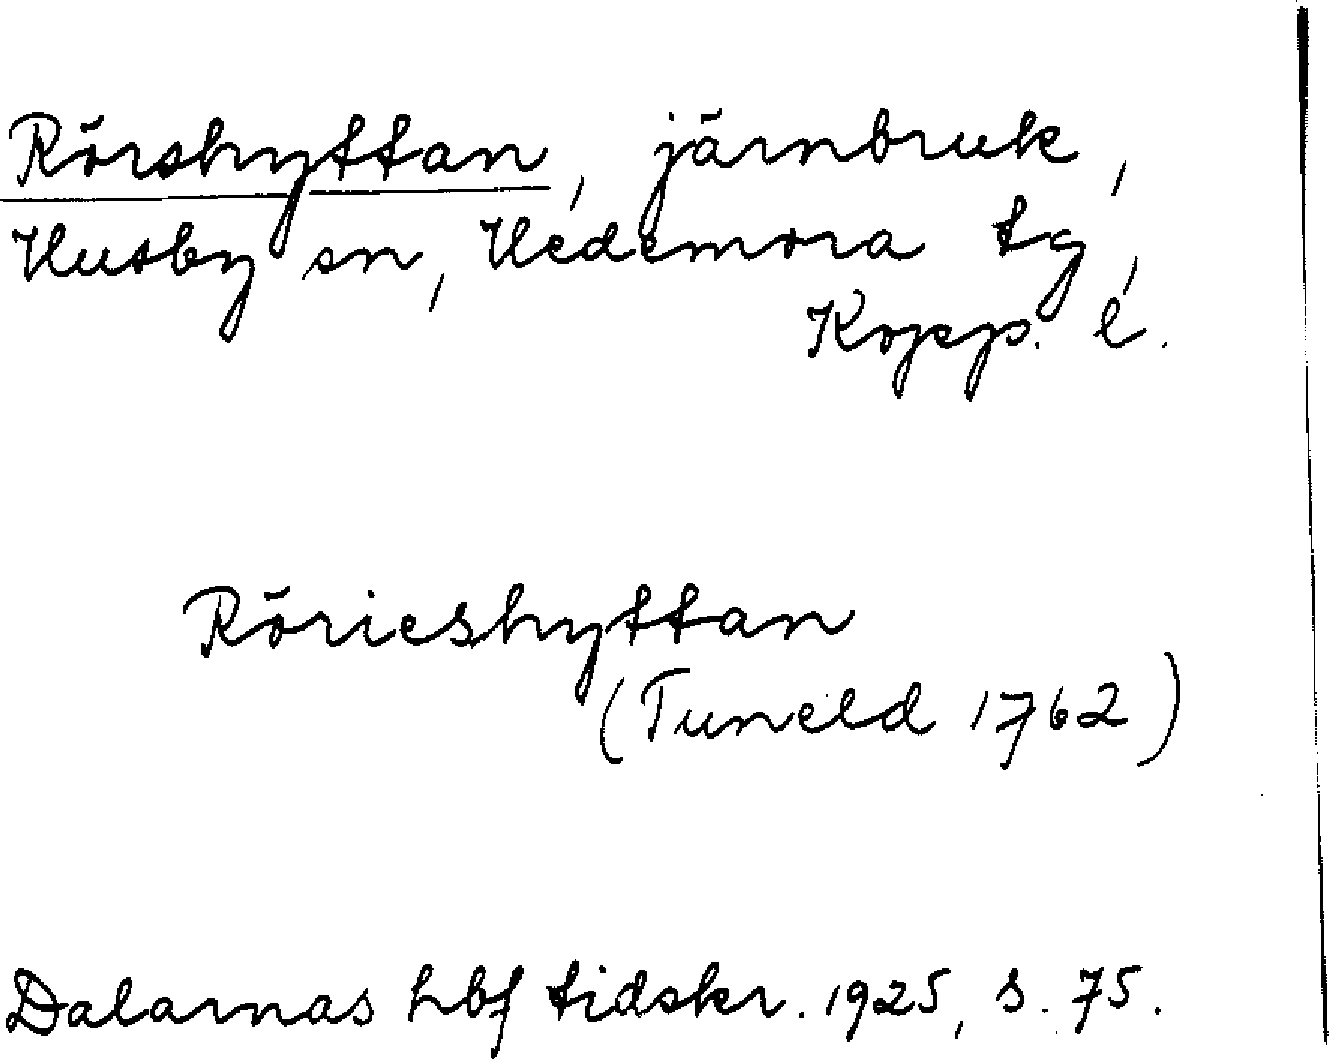 Rörshyttan, järnbruk,
Husby sn, Hedemora tg,
Kopp. l.
Röricshyttan
(Tuneld 1762)
Dalarnas hbf tidskr. 1925, s. 75.